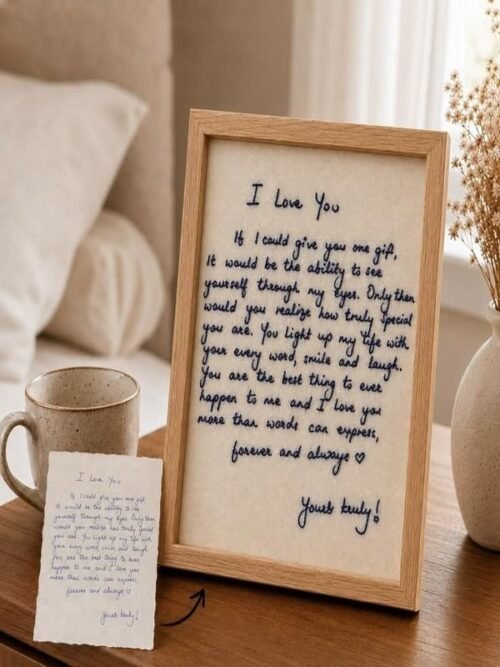 I Love You
If I could give you one gift,
It would be the ability to see
yourself through my eyes. Only then
would you realize how truly special
you are. You light up my life with
your every word, smile and laugh.
You are the best thing to ever
happen to me and I love you
more than words can express,
forever and always ♡
Yours truly!
I Love You
If I could give you one gift
It would be the ability to see
yourself through my eyes. Only then
would you realize how truly special
you are. You light up my life with
your every word, smile and laugh
You are the best thing to ever
happen to me and I love you
more than words can express,
forever and always ♡
Yours truly!